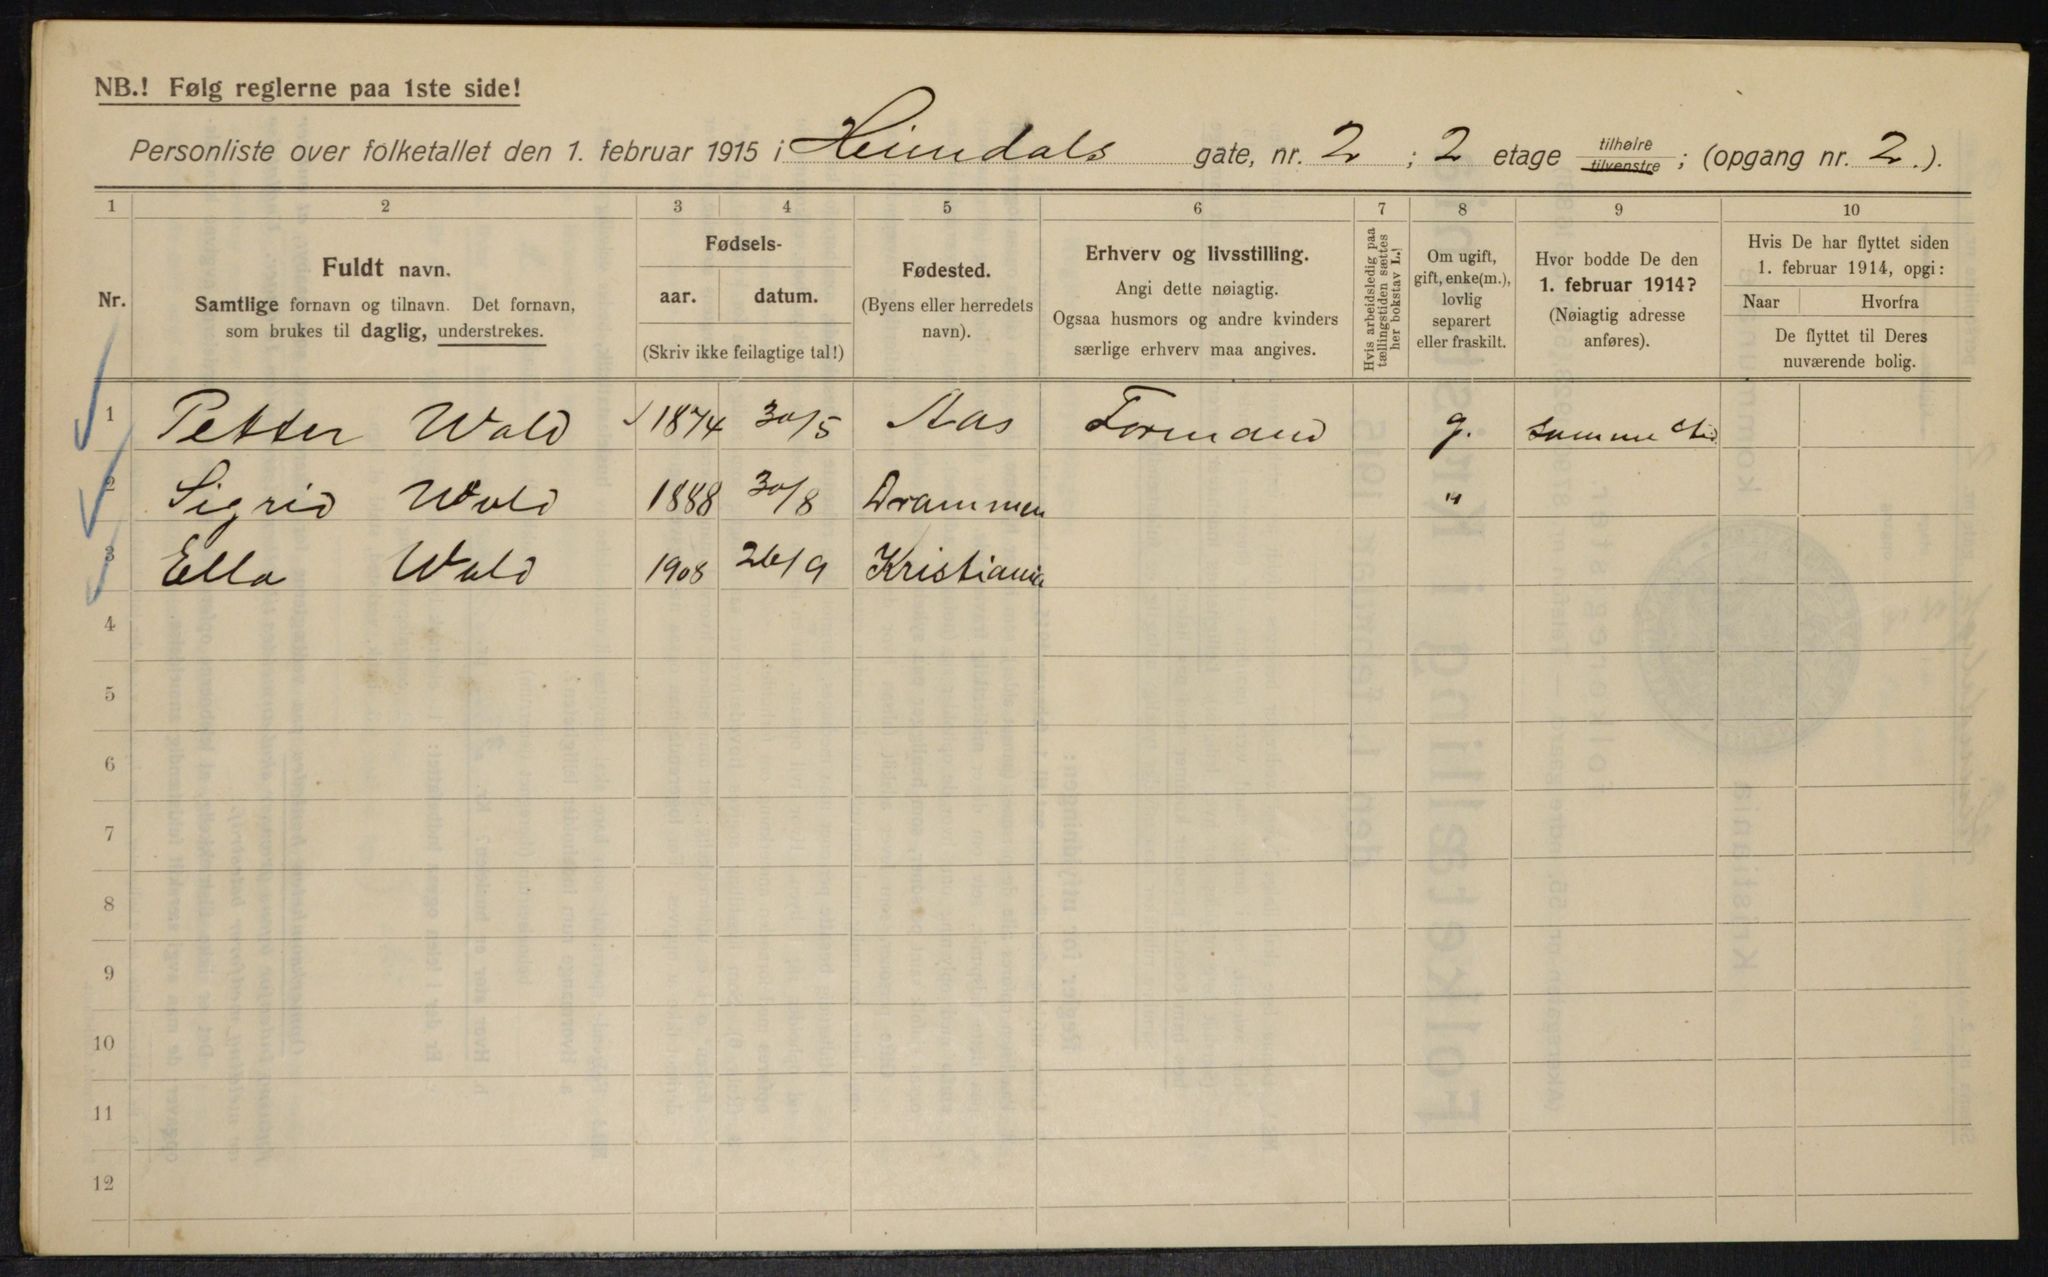 NB.! Følg reglerne paa 1ste side!
Personliste over folketallet den 1. februar 1915 i Heimdals gate, nr. 2 ; 2 etage tilhøire tilvenstre ; (opgang nr. 2.).
1 2 3 4 5 6 7 8 9 10
Nr.
Fuldt navn.
Samtlige fornavn og tilnavn. Det fornavn,
som brukes til daglig, understrekes.
Fødsels-
aar. datum.
(Skriv ikke feilagtige tal!)
Fødested.
(Byens eller herredets
navn).
Erhverv og livsstilling.
Angi dette nøiagtig.
Ogsaa husmors og andre kvinders
særlige erhverv maa angives.
Hvis arbeidsledig paa
tællingstiden sættes
her bokstav L.!
Om ugift,
gift, enke(m.),
lovlig
separert
eller fraskilt.
Hvor bodde De den
1. februar 1914?
(Nøiagtig adresse
anføres).
Hvis De har flyttet siden
1. februar 1914, opgi:
Naar Hvorfra
De flyttet til Deres
nuværende bolig.
1 Petter Wold 1874 30/5 Aas Formand g. samme Sted
2 Sigrid Wold 1888 30/8 Drammen "
3 Ella Wold 1908 26/9 Kristiania
4
5
6
7
8
9
10
11
12